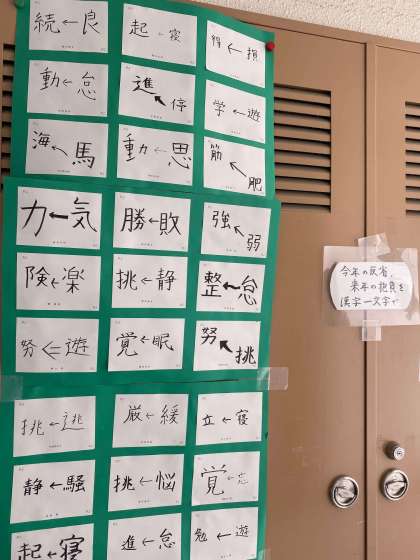 続←良
起←寝
得←損
動←怠
進←停
学←遊
海←馬
動←思
筋←肥
力←気
勝←敗
強←弱
険←楽
挑←静
整←怠
努←遊
覚←眠
努←挑
挑←逃
厳←緩
立←寝
静←騒
挑←悩
覚←忘
起←寝
進←怠
勉←遊
今年の反省、
来年の抱負を
漢字一文字で